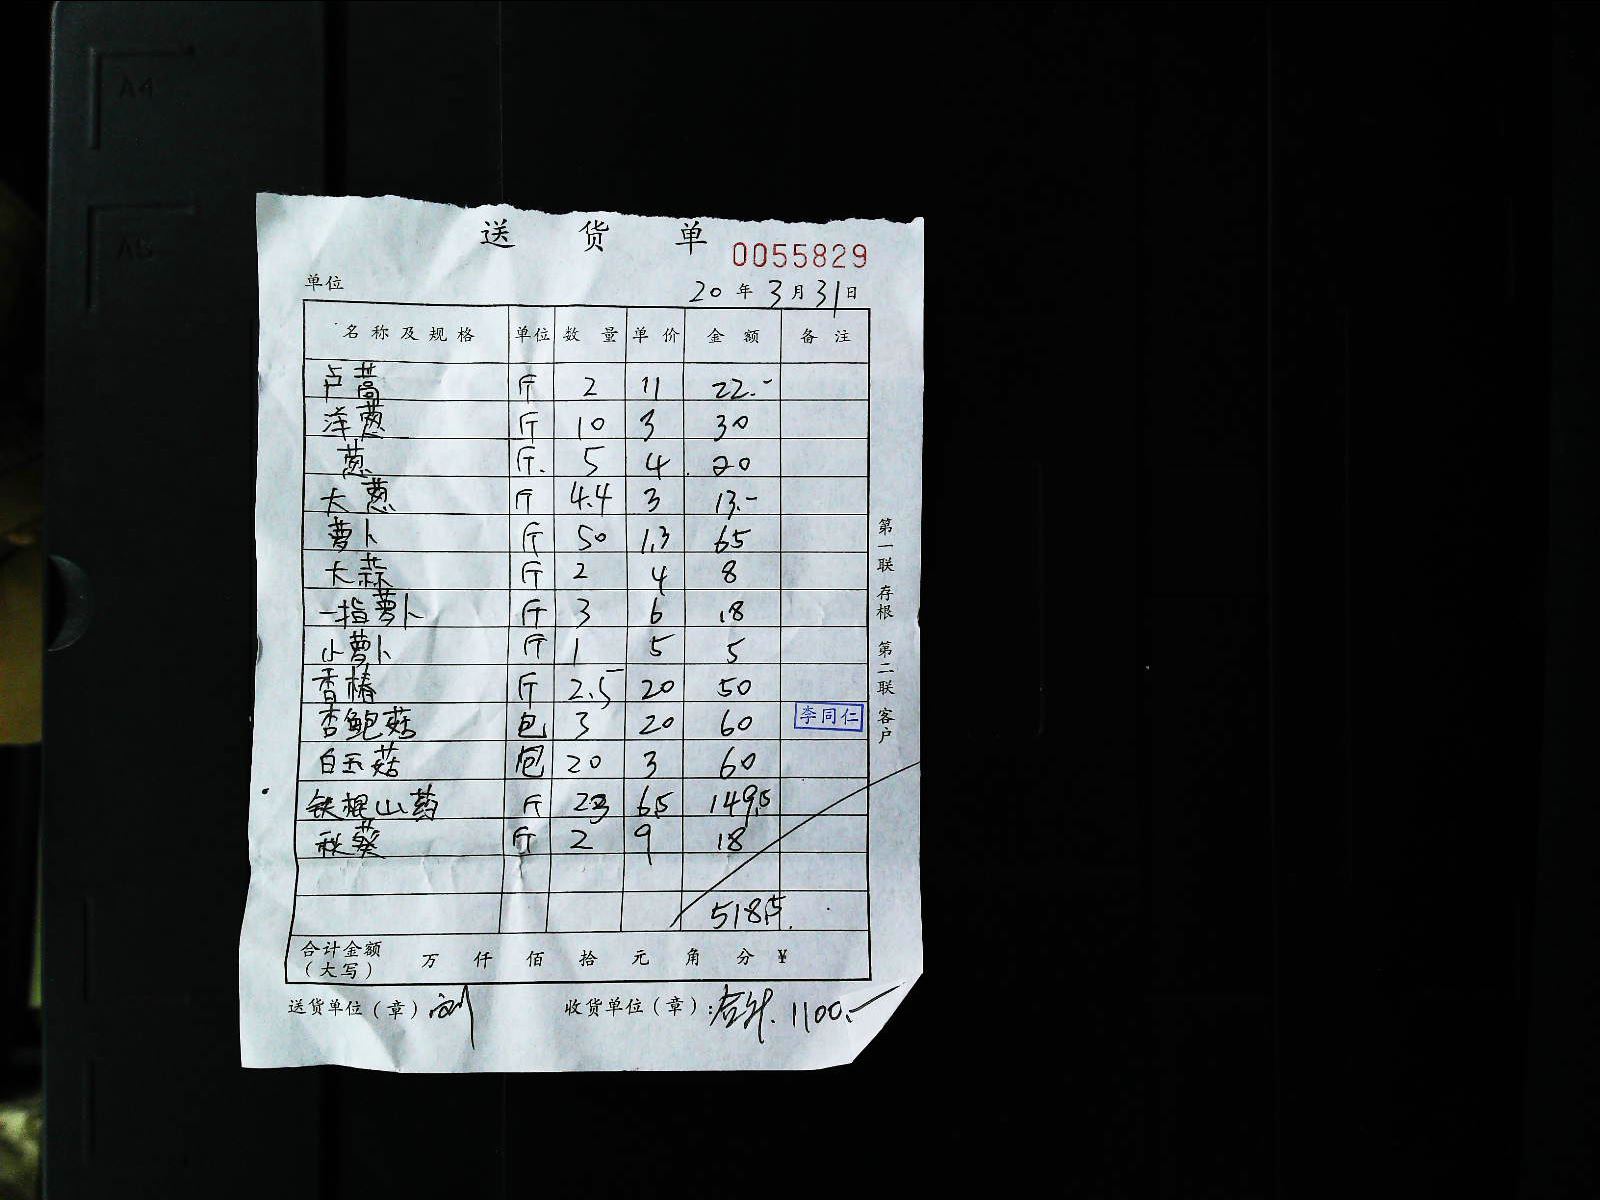 A4
A5
送货单
0055829
单位
20年3月31日
名称及规格 单位 数量 单价 金额 备注
卢蒿 斤 2 11 22.-
洋葱 斤 10 3 30
葱 斤. 5 4 20
大葱 斤 4.4 3 13.-
萝卜 斤 50 1.3 65
大蒜 斤 2 4 8
一指萝卜 斤 3 6 18
小萝卜 斤 1 5 5
香椿 斤 2.5 20 50
杏鲍菇 包 3 20 60
李同仁
白玉菇 包 20 3 60
铁棍山药 斤 23 6.5 149.5
秋葵 斤 2 9 18
518.5
合计金额
(大写) 万 仟 佰 拾 元 角 分 ¥
送货单位(章) 刘 收货单位(章): 合计. 1100.-
第一联 存根 第二联 客户